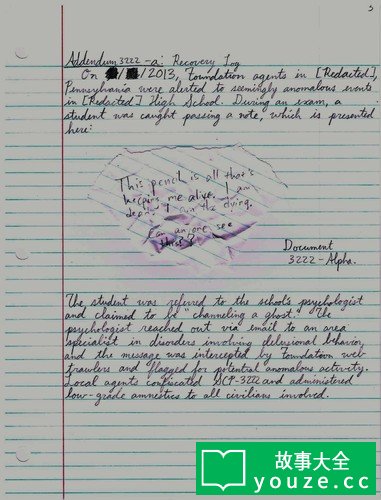 5
Addendum 3222-a: Recovery Log
On / /2013, Foundation agents in [Redacted],
Pennsylvania were alerted to seemingly anomalous events
in [Redacted] High School. During an exam, a
student was caught passing a note, which is presented
here:
This pencil is all that's
keeping me alive. I am
dead. I am the dying.
Can anyone see
this?
Document
3222-Alpha.
The student was referred to the school's psychologist
and claimed to be "channeling a ghost". The
psychologist reached out via email to an area
specialist in disorders involving delusional behavior,
and the message was intercepted by Foundation web
crawlers and flagged for potential anomalous activity.
Local agents confiscated SCP-3222 and administered
low-grade amnestics to all civilians involved.
故事大全
youze.cc